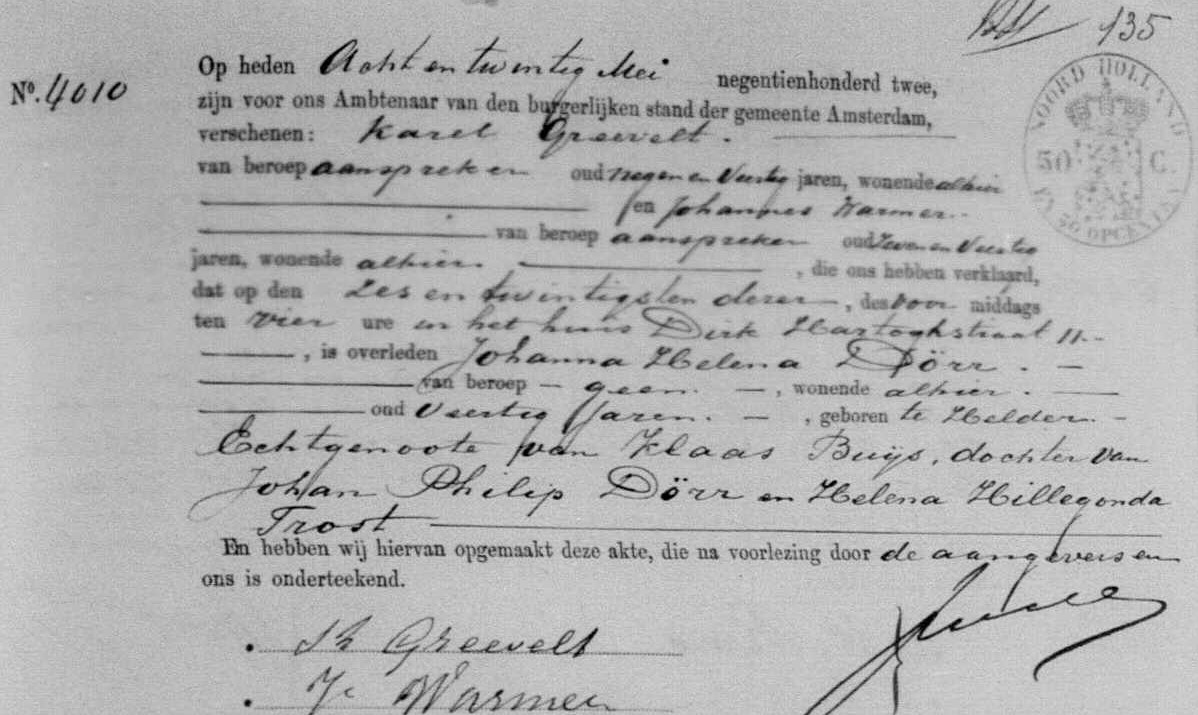 135
Nº. 4010
Op heden Acht en twintig Mei negentienhonderd twee,
zijn voor ons Ambtenaar van den burgerlijken stand der gemeente Amsterdam,
verschenen: Karel Greevelt.
van beroep aanspreker oud negen en Veertig jaren, wonende alhier
en Johannes Warmer
van beroep aanspreker oud Zeven en Veertig
jaren, wonende alhier. , die ons hebben verklaard,
dat op den Zes en twintigsten dezer , des voor middags
ten vier ure in het huis Dirk Hartoghstraat 11.
, is overleden Johanna Helena Dörr.
van beroep - geen. - , wonende alhier.
oud Veertig Jaren. - , geboren te Helder. -
Echtgenoote van Klaas Buijs, dochter van
Johan Philip Dörr en Helena Hillegonda
Trost
En hebben wij hiervan opgemaakt deze akte, die na voorlezing door de aangevers en
ons is onderteekend.
Greevelt
Warmer
NOORD HOLLAND
50 C.
EN 30 OPCENTEN